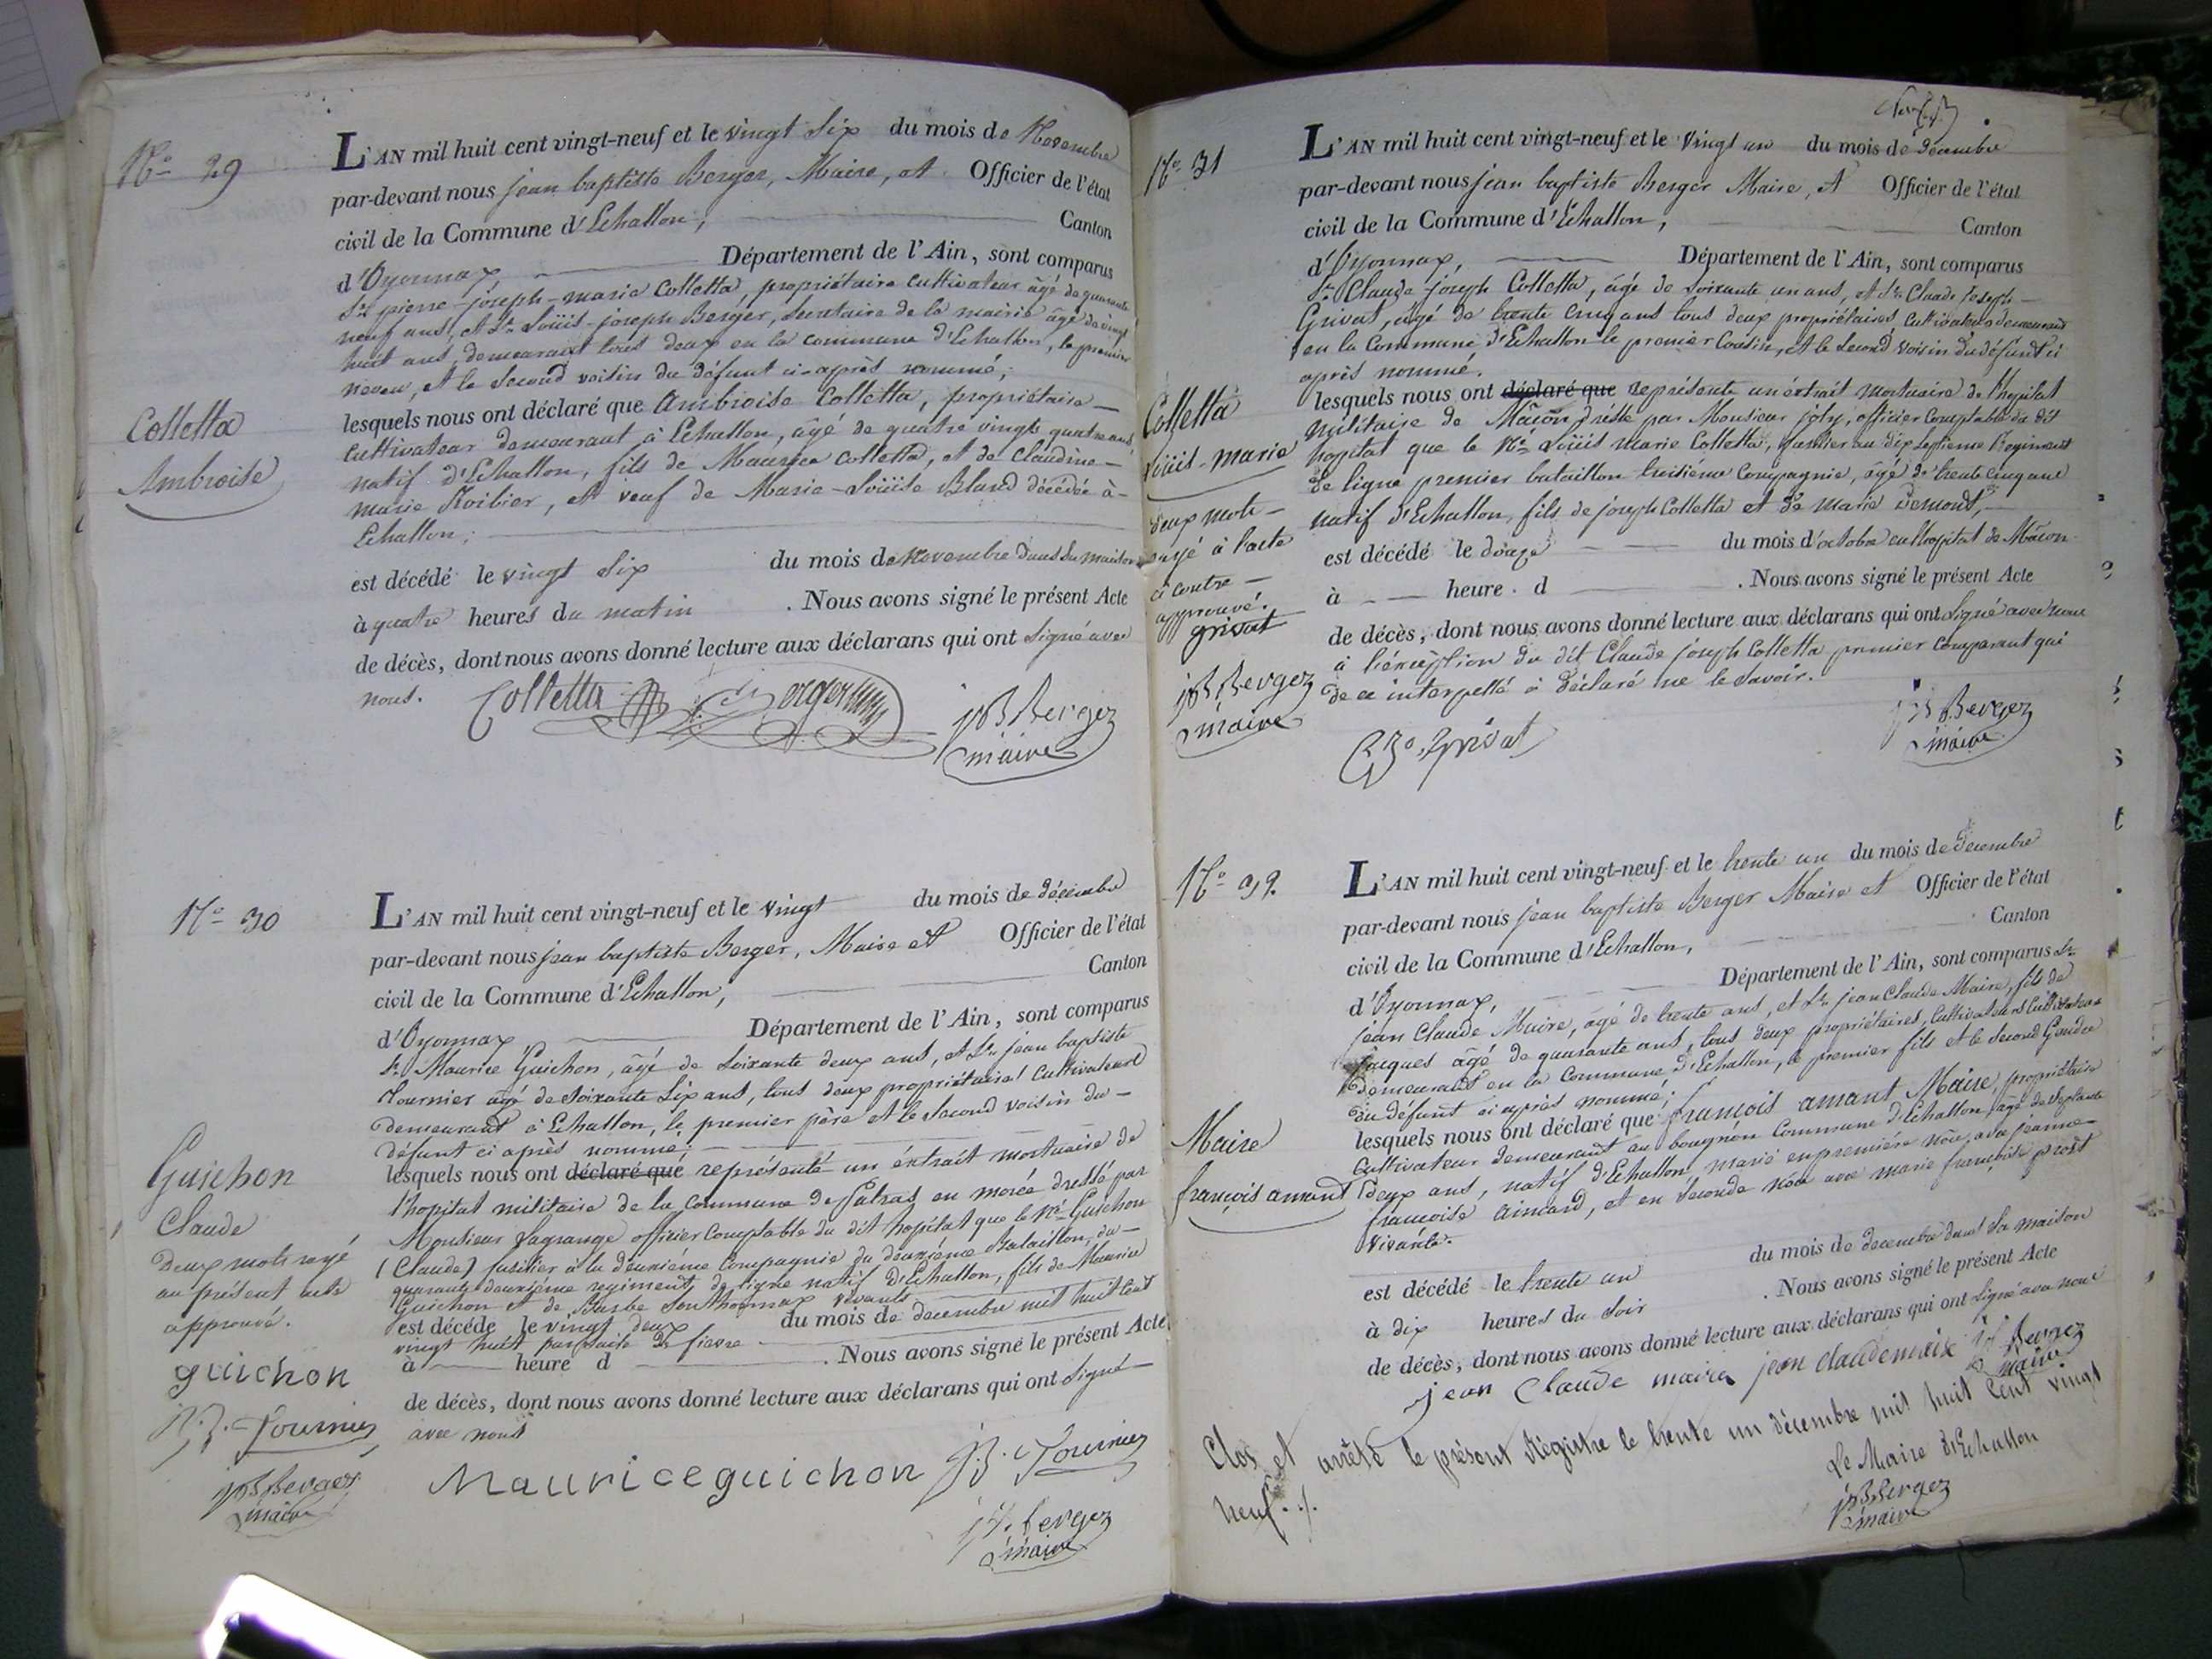 No 29
L'AN mil huit cent vingt-neuf et le vingt six du mois de Novembre
par-devant nous jean baptiste Berger, Maire, et Officier de l'état
civil de la Commune d'Echallon, Canton
d'Oyonnax Département de l'Ain, sont comparus
Sr pierre-joseph-marie Colletta, propriétaire cultivateur âgé de quarante
neuf ans, et Sr Loüis-joseph Berger, secretaire de la mairie âgé de vingt
huit ans, demeurant tous deux en la commune d'Echallon, le premier
neveu, et le second voisin du défunt ci-après nommé;
lesquels nous ont déclaré que Ambroise Colletta, propriétaire
Colletta
Ambroise
cultivateur demeurant à Echallon, âgé de quatre vingt quatre ans
natif d'Echallon, fils de Maurice Colletta, et de Claudine
marie, et veuf de Marie-Loüise Bland décédée à
Echallon;
est décédé le vingt six du mois de Novembre dans sa maison
à quatre heures du matin. Nous avons signé le présent Acte
de décès, dont nous avons donné lecture aux déclarans qui ont signé avec
nous.
Colletta Berger
jB Berger
maire
No 30
L'AN mil huit cent vingt-neuf et le vingt du mois de décembre
par-devant nous jean baptiste Berger, Maire et Officier de l'état
civil de la Commune d'Echallon, Canton
d'Oyonnax Département de l'Ain, sont comparus
Sr Maurice Guichon, âgé de soixante deux ans, et Sr jean baptiste
Tournier âgé de soixante six ans, tous deux propriétaires cultivateurs
demeurant à Echallon, le premier père et le second voisin du
défunt ci après nommé;
lesquels nous ont déclaré que représenté un éxtrait mortuaire de
Guichon
Claude
l'hopital militaire de la commune de Patras en morée dressé par
Monsieur Lagrange officier comptable du dit hopital que le né Guichon
(Claude) fusilier à la deuxiéme compagnie du deuxiéme Bataillon, du
quarante deuxiéme regiment de ligne natif d'Echallon, fils de Maurice
Guichon et de Barbe Southonnax vivants
est décédé le vingt deux du mois de decembre mil huit cent
vingt huit par suite de fievre
à heure d . Nous avons signé le présent Acte
de décès, dont nous avons donné lecture aux déclarans qui ont signé
avec nous
deux mots rayé
au présent acte
approuvé.
guichon
J.B. Tournier
jB Berger
maire
Maurice guichon J.B. Tournier
jB Berger
maire
No 31
L'AN mil huit cent vingt-neuf et le vingt un du mois de décembre
par-devant nous jean baptiste Berger Maire, et Officier de l'état
civil de la Commune d'Echallon, Canton
d'Oyonnax, Département de l'Ain, sont comparus
Sr Claude joseph Colletta, âgé de soixante un ans, et Sr Claude joseph
Grivat, âgé de trente cinq ans tous deux propriétaires, cultivateurs demeurant
en la Commune d'Echallon le premier Cousin, et le second voisin du défunt ci
après nommé.
lesquels nous ont déclaré que représente un éxtrait mortuaire de l'hopital
Colletta
Loüis-marie
militaire de Mâcon dressé par Monsieur joly, officier comptable du dit
hopital que le né Loüis marie Colletta, fusilier au dix septieme Regiment
de ligne premier bataillon troisiéme compagnie, âgé de trente cinq ans
natif d'Echallon, fils de joseph Colletta et de marie Demont,
est décédé le douze du mois d'octobre en l'hopital de Mâcon
à heure d . Nous avons signé le présent Acte
de décès, dont nous avons donné lecture aux déclarans qui ont signé avec nous
à l'éxception du dit Claude joseph Colletta premier comparant qui
de ce interpellé a déclaré ne le savoir.
deux mots
rayé à l'acte
ci contre
approuvé.
grivat
jB Berger
maire
grivat
jB Berger
maire
No 32.
L'AN mil huit cent vingt-neuf et le trente un du mois de decembre
par-devant nous jean baptiste Berger Maire et Officier de l'état
civil de la Commune d'Echallon, Canton
d'Oyonnax, Département de l'Ain, sont comparus Sr
jean Claude Maire, âgé de trente ans, et Sr jean Claude Maire, fils de
jacques âgé de quarante ans, tous deux propriétaires, cultivateurs
demeurant en la Commune d'Echallon, le premier fils et le second Gendre
du défunt ci après nommé;
lesquels nous ont déclaré que françois amant Maire, propriétaire
Maire
françois amant
cultivateur demeurant au bougnon commune d'Echallon, âgé de soixante
deux ans, natif d'Echallon, marié en première nôce avec jeanne
francoise aimard, et en seconde nôce avec marie françoise prost
vivante.
est décédé le trente un du mois de decembre dans sa maison
à dix heures du soir . Nous avons signé le présent Acte
de décès, dont nous avons donné lecture aux déclarans qui ont signé avec nous
jean Claude maire jean claude maire jB Berger
maire
Clos et arrêté le présent Régistre le trente un décembre mil huit cent vingt
neuf./.
Le Maire d'Echallon
jB Berger
maire